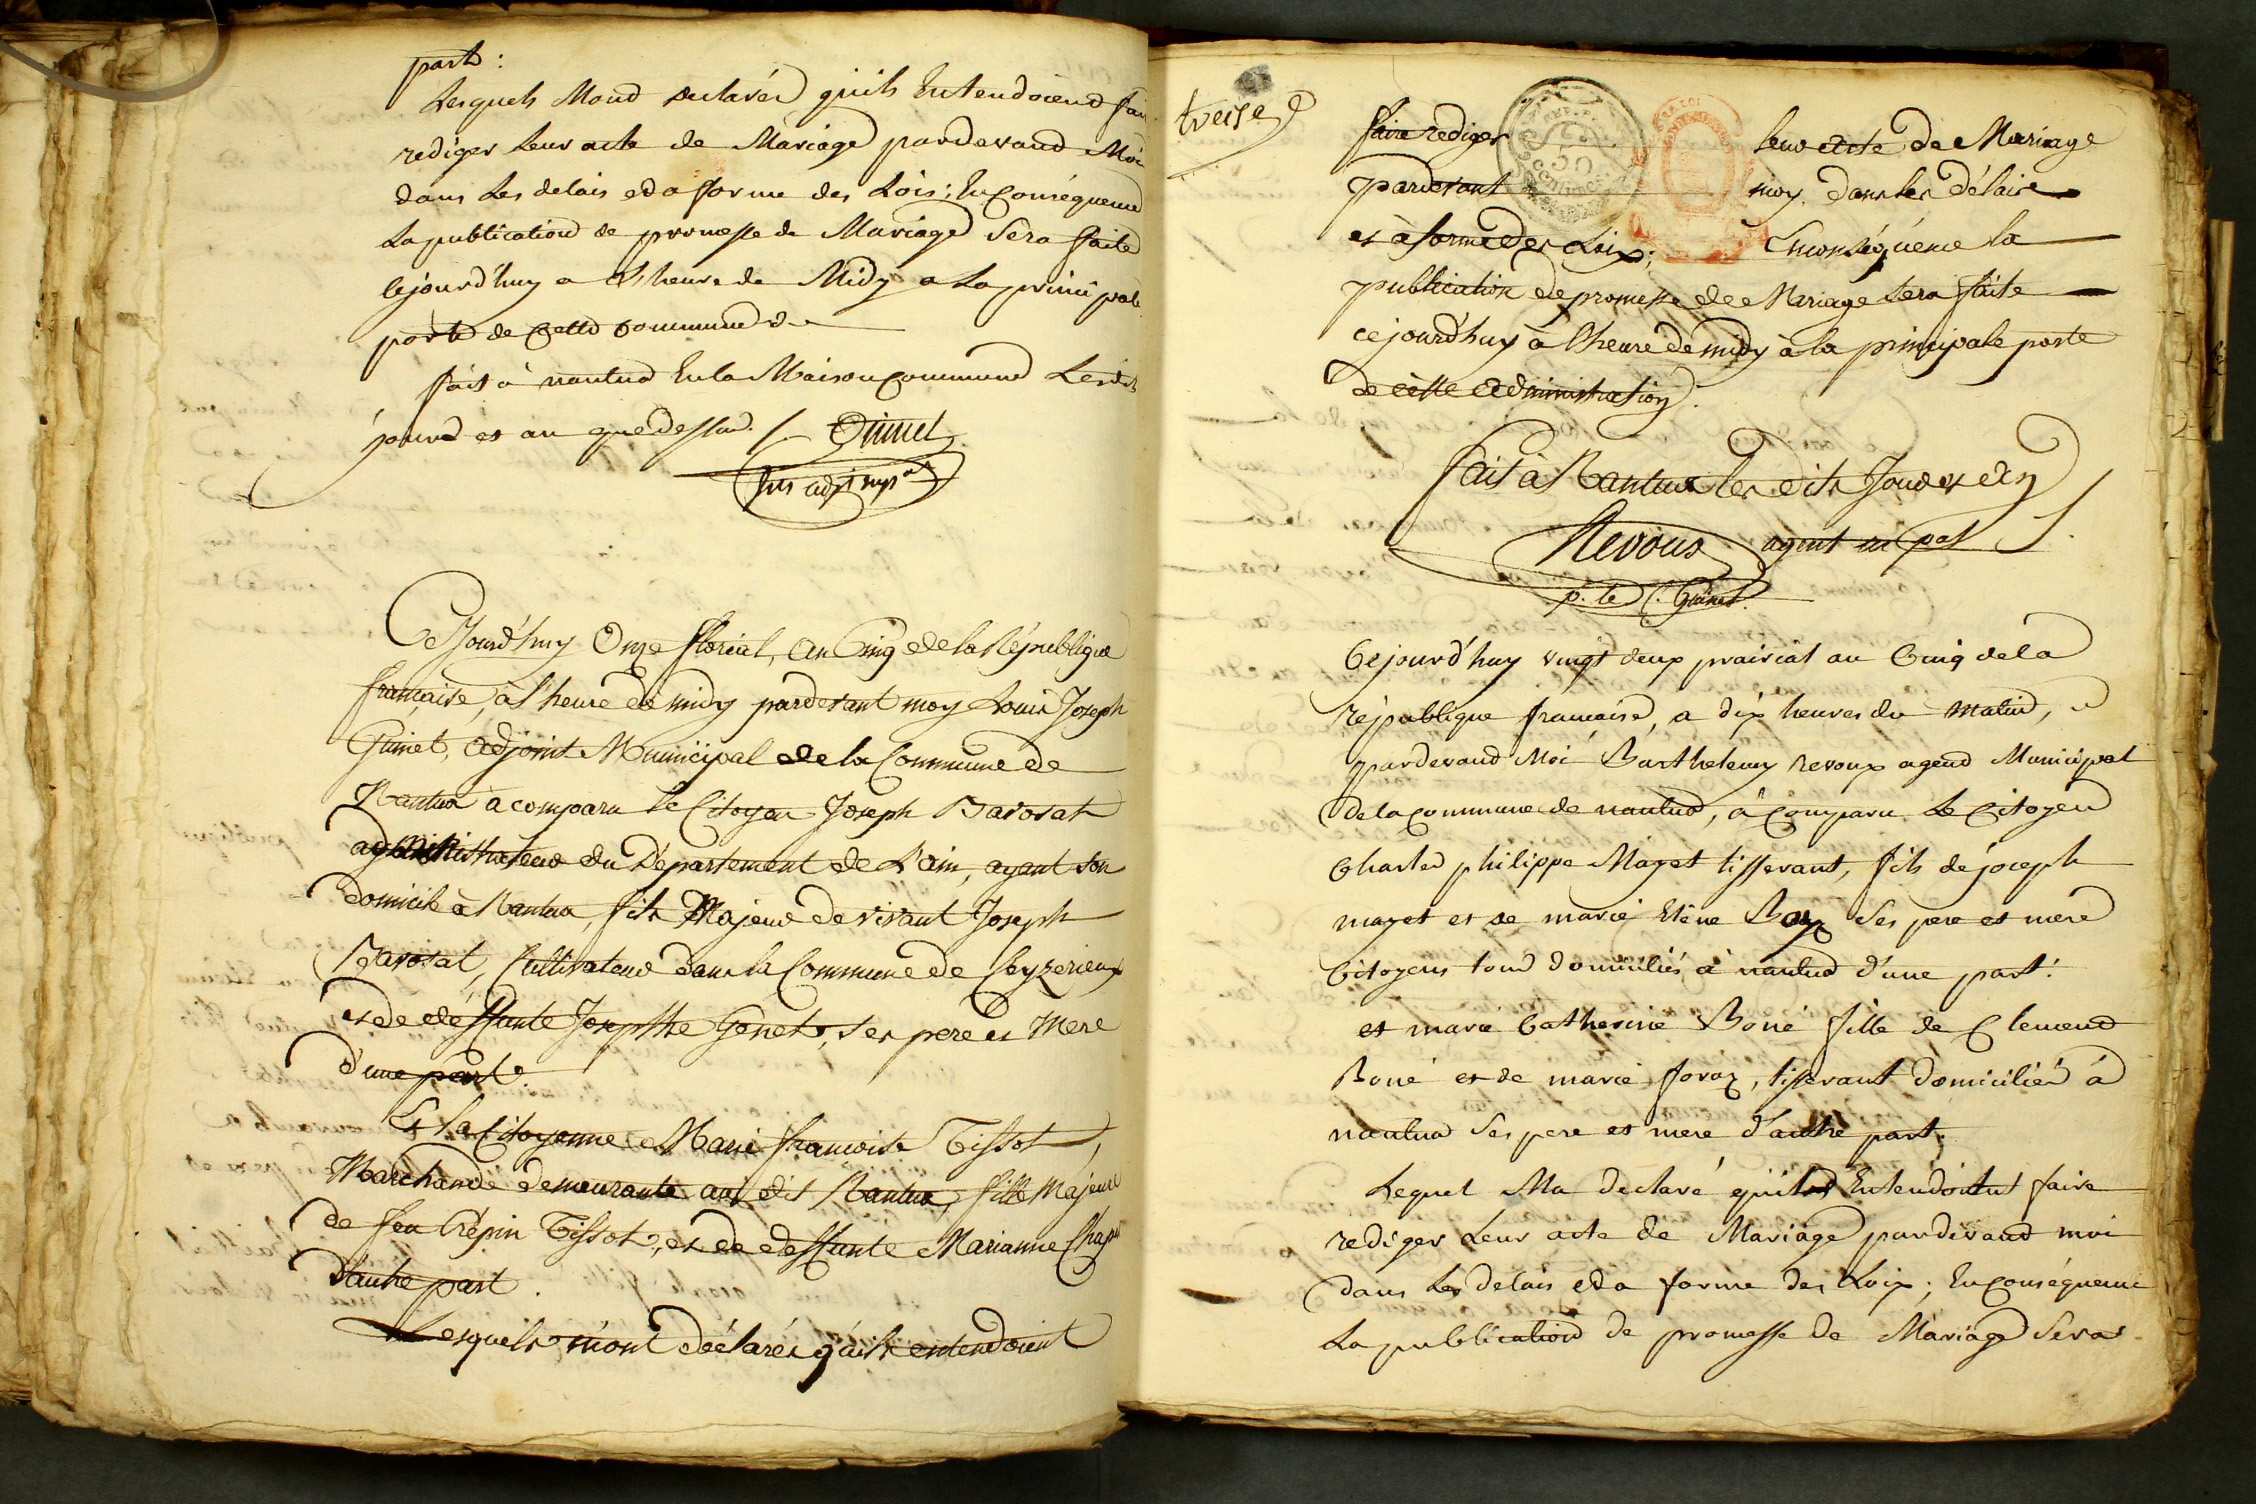 part:
Lesquels Mond declarés quils Entendoiend fai
rediger Leur acte de Mariage pardevand Moi
dans Les delais eda forme des Lois; En Conséquence
La publication de promesse de Mariage Sera faite
cejourd'huy a Lheure de Midy a La principale
porte de Cette Commune
fait à nantua En la Maison Commune Lesdits
jours et an que dessus. Guinet
adjt mpal
Cejourd'huy Onze floréal, an Cinq de la République
française, à l'heure de midy pardevant moy Louis Joseph
Guinet, adjoint Municipal de la Commune de
Nantua a comparu le Citoyen Joseph Bavosat
administrateur du Département de L'ain, ayant son
domicile à Nantua, fils Majeur de vivant Joseph
Bavosat, Cultivateur dans la Commune de Ceyzerieux
et de deffunte Josephte Genet, ses pere et Mere
d'une part.
Et la Citoyenne Marie francoise Tissot,
Marchande demeurante au dit Nantua, fille Majeure
de feu Crépin Tissot, et de deffunte Marianne Chapu
d'autre part.
Lesquels m'ont déclarés qu'ils entendoient
treise
faire rediger leur acte de Mariage
pardevant moy dans les délais
et à forme des Loix; En conséquence la
publication de promesse de Mariage sera faite
cejourd'huy à l'heure de midy à la principale porte
de cette administration.
fait à Nantua les dits Jour et an
Revoux agent m pal
p. le C. Guinet
Cejourd'huy vingt deux prairial an Cinq de la
république française, a dix heures du matin,
pardevand Moi Barthelemy revoux agend Municipal
de la commune de nantua, à Comparu Le Citoyen
Charles philippe Mayet tisserant, fils de joseph
mayet et de marie Elène Roy Ses pere et mere
Citoyens tous domiciliés à nantua d'une part:
et marie Catherine Boné fille de Clemend
Boné et de marie foraz, tisserant domiciliés à
nantua Ses pere et mere d'autre part.
Lequel Ma declaré quils Entendoient faire
rediger Leur acte de Mariage pardevand moi
dans Les delais eda forme des Loix; En Conséquence
La publication de promesse de Mariage Sera